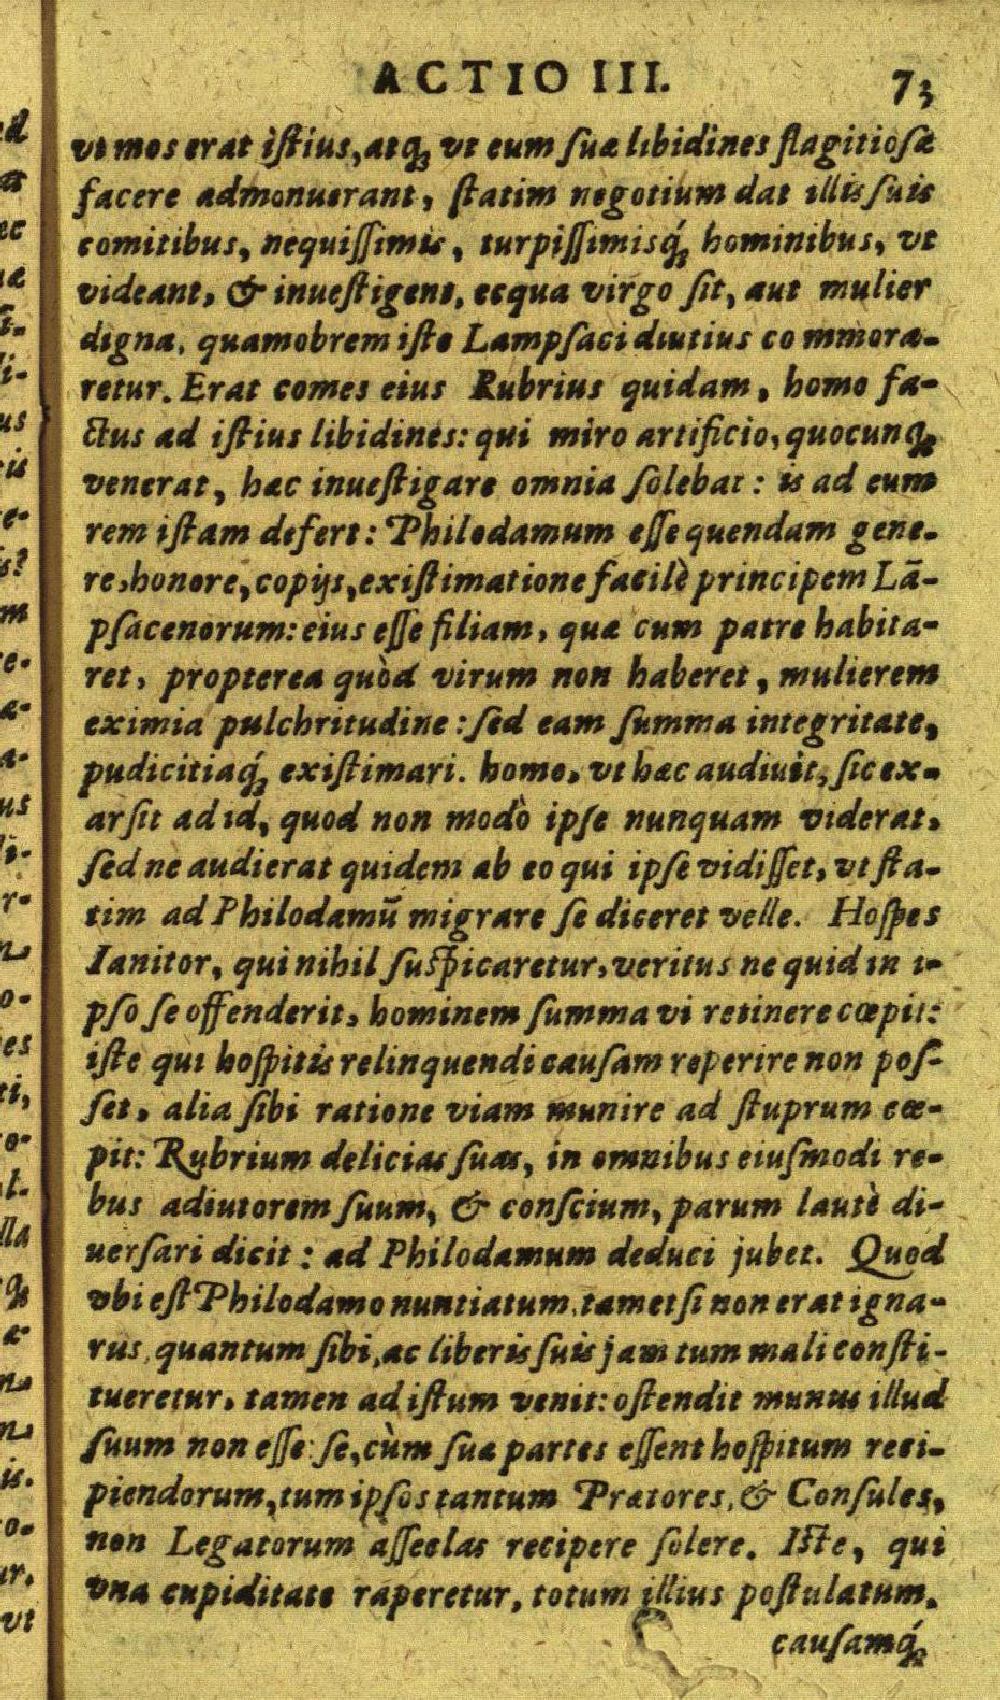 ACTIO III. 73
vt mos erat istius, atq; vt eum suæ libidines flagitiosæ
facere admonuerant, statim negotium dat illis suis
comitibus, nequissimis, turpissimisq́; hominibus, vt
videant, & inuestigent, ecqua virgo sit, aut mulier
digna, quamobrem iste Lampsaci diutius co mmora-
retur. Erat comes eius Rubrius quidam, homo fa-
ctus ad istius libidines: qui miro artificio, quocunq;
venerat, hæc inuestigare omnia solebat: is ad eum
rem istam defert: Philodamum esse quendam gene-
re, honore, copijs, existimatione facilè principem Lā-
psacenorum: eius esse filiam, quæ cum patre habita-
ret, propterea quòd virum non haberet, mulierem
eximia pulchritudine: sed eam summa integritate,
pudicitiaq́; existimari. homo, vt hæc audiuit, sic ex-
arsit ad id, quod non modò ipse nunquam viderat,
sed ne audierat quidem ab eo qui ipse vidisset, vt sta-
tim ad Philodamū migrare se diceret velle. Hospes
Ianitor, qui nihil suspicaretur, veritus ne quid in i-
pso se offenderit, hominem summa vi retinere cœpit:
iste qui hospitis relinquendi causam reperire non pos-
set, alia sibi ratione viam munire ad stuprum cœ-
pit: Rubrium delicias suas, in omnibus eiusmodi re-
bus adiutorem suum, & conscium, parum lautè di-
uersari dicit: ad Philodamum deduci jubet. Quod
vbi est Philodamo nuntiatum, tametsi non erat igna-
rus, quantum sibi, ac liberis suis jam tum mali consti-
tueretur, tamen ad istum venit: ostendit munus illud
suum non esse: se, cùm suæ partes essent hospitum reci-
piendorum, tum ipsos tantum Prætores, & Consules,
non Legatorum asseclas recipere solere. Iste, qui
vna cupiditate raperetur, totum illius postulatum,
causamq́;